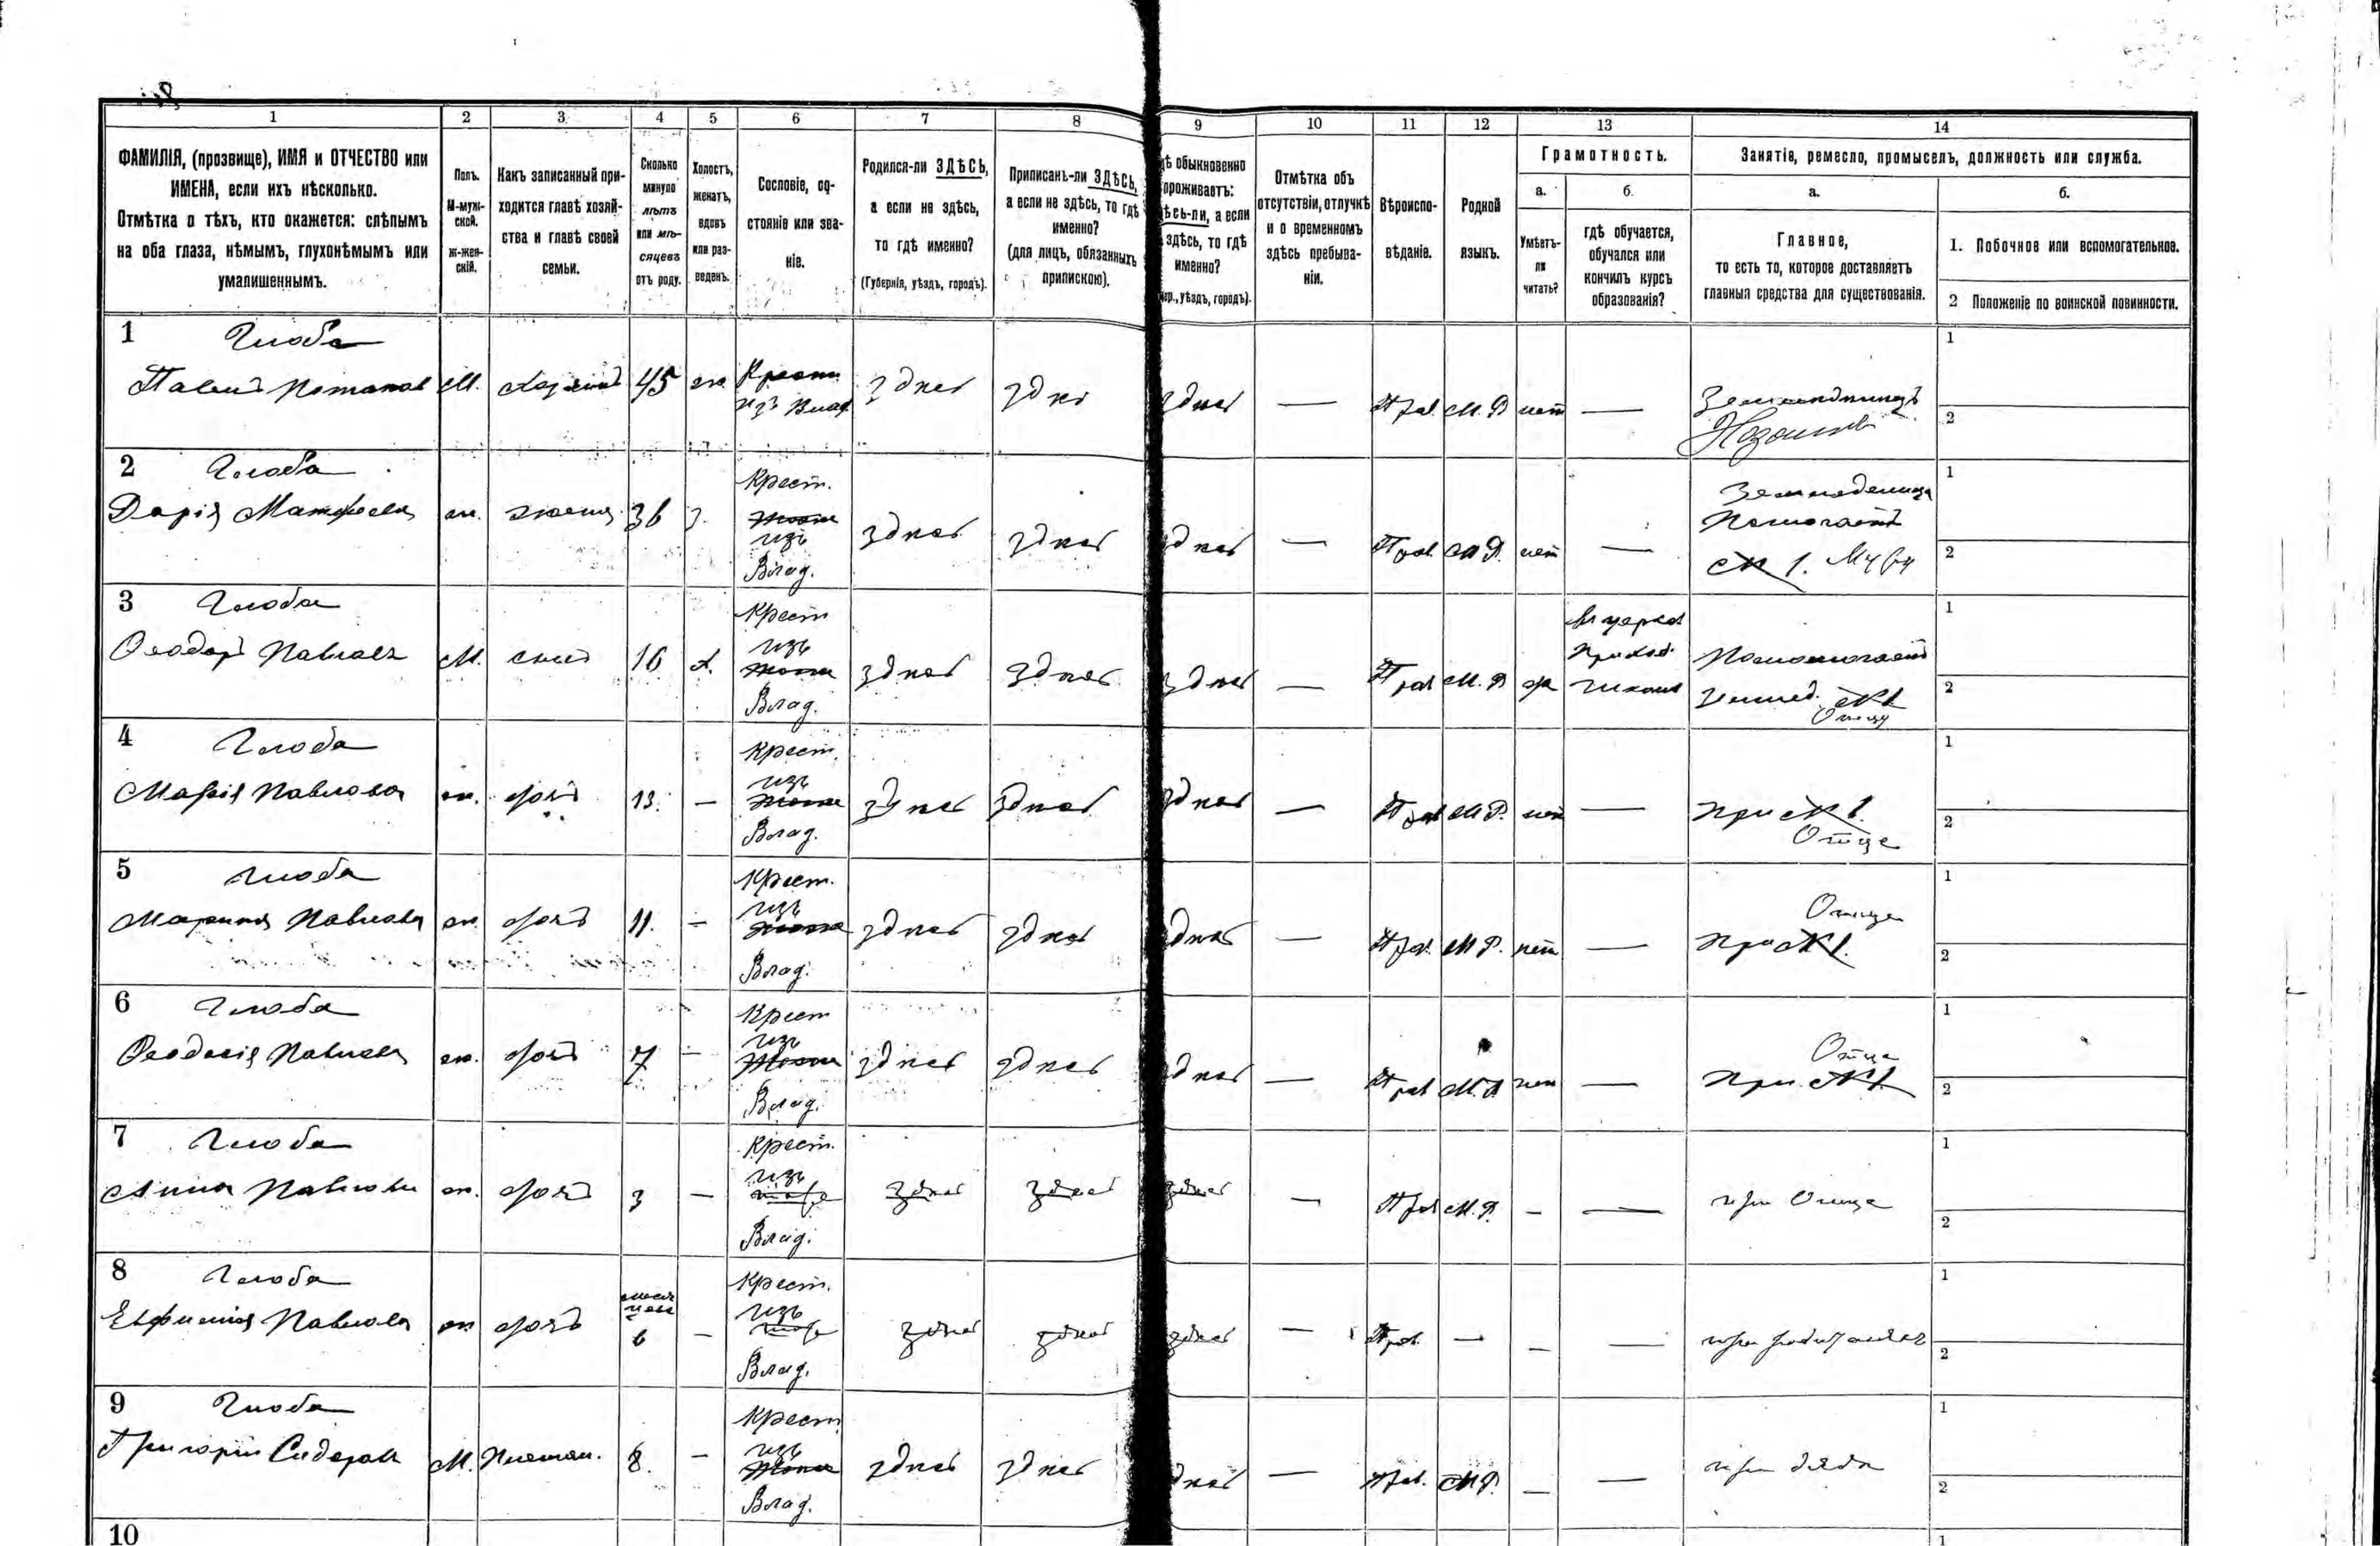 1 2 3 4 5 6 7 8 9 10 11 12 13 14
ФАМИЛІЯ, (прозвище), ИМЯ и ОТЧЕСТВО или
ИМЕНА, если ихъ нѣсколько.
Отмѣтка о тѣхъ, кто окажется: слѣпымъ
на оба глаза, нѣмымъ, глухонѣмымъ или
умалишеннымъ.
Полъ.
М-муж-
ской.
Ж-жен-
скій.
Какъ записанный при-
ходится главѣ хозяй-
ства и главѣ своей
семьи.
Сколько
минуло
лѣтъ
или мѣ-
сяцевъ
отъ роду.
Холостъ,
женатъ,
вдовъ
или раз-
веденъ.
Сословіе, со-
стояніе или зва-
ніе.
Родился-ли ЗДѢСЬ,
а если не здѣсь,
то гдѣ именно?
(Губернія, уѣздъ, городъ).
Приписанъ-ли ЗДѢСЬ,
а если не здѣсь, то гдѣ
именно?
(для лицъ, обязанныхъ
припискою).
дѣ обыкновенно
проживаетъ:
ѣсь-ли, а если
здѣсь, то гдѣ
именно?
ер., уѣздъ, городъ).
Отмѣтка объ
отсутствіи, отлучкѣ
и о временномъ
здѣсь пребыва-
ніи.
Вѣроиспо-
вѣданіе.
Родной
языкъ.
Грамотность.
а.
Умѣетъ-
ли
читать?
б.
гдѣ обучается,
обучался или
кончилъ курсъ
образованія?
Занятіе, ремесло, промыселъ, должность или служба.
а.
Главное,
то есть то, которое доставляетъ
главныя средства для существованія.
б.
1. Побочное или вспомогательное.
2 Положеніе по воинской повинности.
1 Глоба
Павелъ Потапов М. 45 здесь здесь здесь — Прав. М. Р нет —
1
2
2 Глоба
Дарія Матфеева ж. жена 36 з. Крест. изъ Влад. здесь здесь здесь — Прав. М Р. нет —
1
2
3 Глоба
Феодоръ Павлов М. сынъ 16 х. Крест изъ Влад. здесь здесь здесь — Прав М. Р
1
2
4 Глоба
Марія Павлова ж. дочь 13. — Крест. изъ Влад. здесь здесь здесь — Прав М Р. нет — при Отце
1
2
5 Глоба
Марина Павлова ж. дочь 11. — Крест. изъ Влад. здесь здесь здесь — Прав. М Р. нет — при Отце
1
2
6 Глоба
Феодосія Павлова ж. дочь 7 — Крест изъ Влад. здесь здесь здесь — Прав М. Р нет — при Отце
1
2
7 Глоба
Анна Павлова ж. дочь 3 — Крест. изъ Влад. здесь здесь здесь — Прав М. Р. — — при Отце
1
2
8 Глоба
Евфимія Павлова ж дочь 6 — Крест. изъ Влад. здесь здесь здесь — Прав. — — — при родителях
1
2
9 Глоба
Григорій Сидоров М. Племян. 8. — Крест изъ Влад. здесь здесь здесь — Прав. М Р. — — при дяде
1
2
10
1